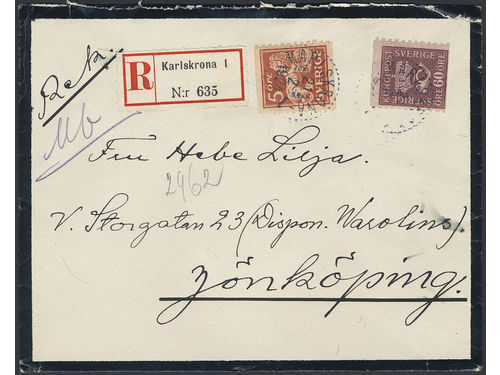 Rek.
R
Karlskrona 1
N:r 635
5 ÖRE
SVERIGE
KARLSKRONA
KUNGL. POST SVERIGE
60 ÖRE
Fru Hebe Lilja.
2962
V. Storgatan 23 (Dispon. Warolins)
Jönköping.